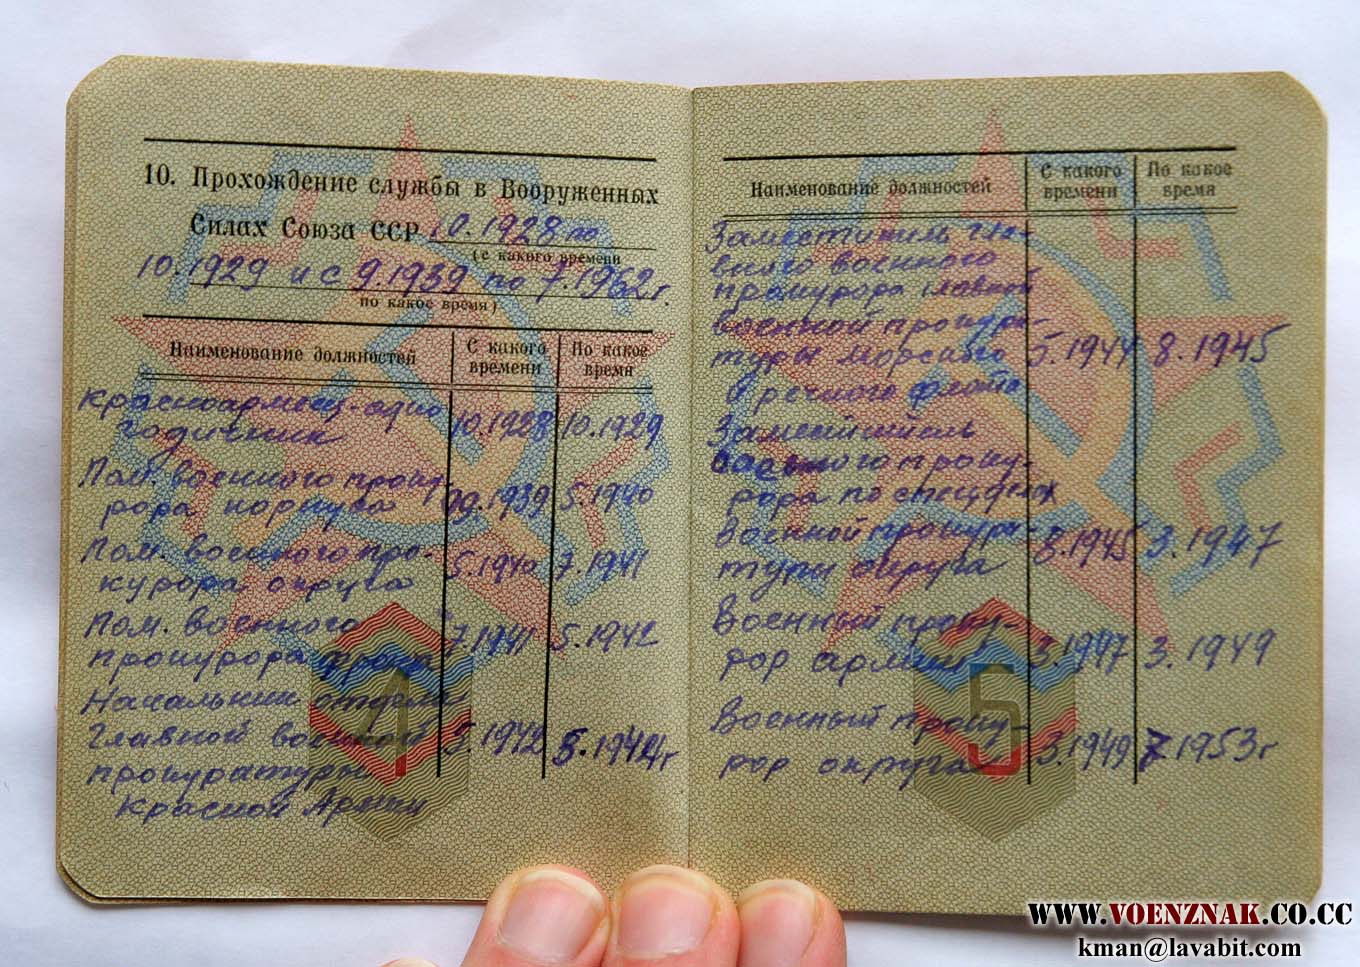 10. Прохождение службы в Вооруженных
Силах Союза ССР 10.1928 по
(с какого времени
10.1929 и с 9.1939 по 7.1962г.
по какое время)
Наименование должностей
С какого времени
По какое время
красноармеец-одно
годичник 10.1928 10.1929
Пом. военного проку-
рора корпуса 09.1939 5.1940
Пом. военного про-
курора округа 5.1940 7.1941
Пом. военного
прокурора фронта 7.1941 5.1942
Начальник отдела
Главной военной 5.1942 5.1944г
прокуратуры
Красной Армии
4
Наименование должностей
С какого времени
По какое время
Заместитель гла-
вного военного
прокурора главной
военной прокура-
туры морского 5.1944 8.1945
и речного флота
Заместитель
военного проку-
рора по спецделам
Военной прокура-
туры округа 8.1945 3.1947
Военный проку-
рор армии 3.1947 3.1949
Военный проку-
рор округа 3.1949 7.1953г
5
WWW.VOENZNAK.CO.CC
kman@lavabit.com